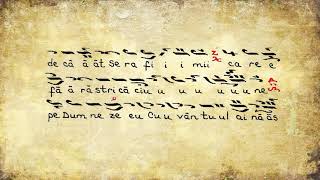 de că ă ăt Se ra fi i i mii ca re e
fă ă ră stri că ciu u u u u u ne
pe Dum ne ze eu Cu vân tu ul ai nă ăs